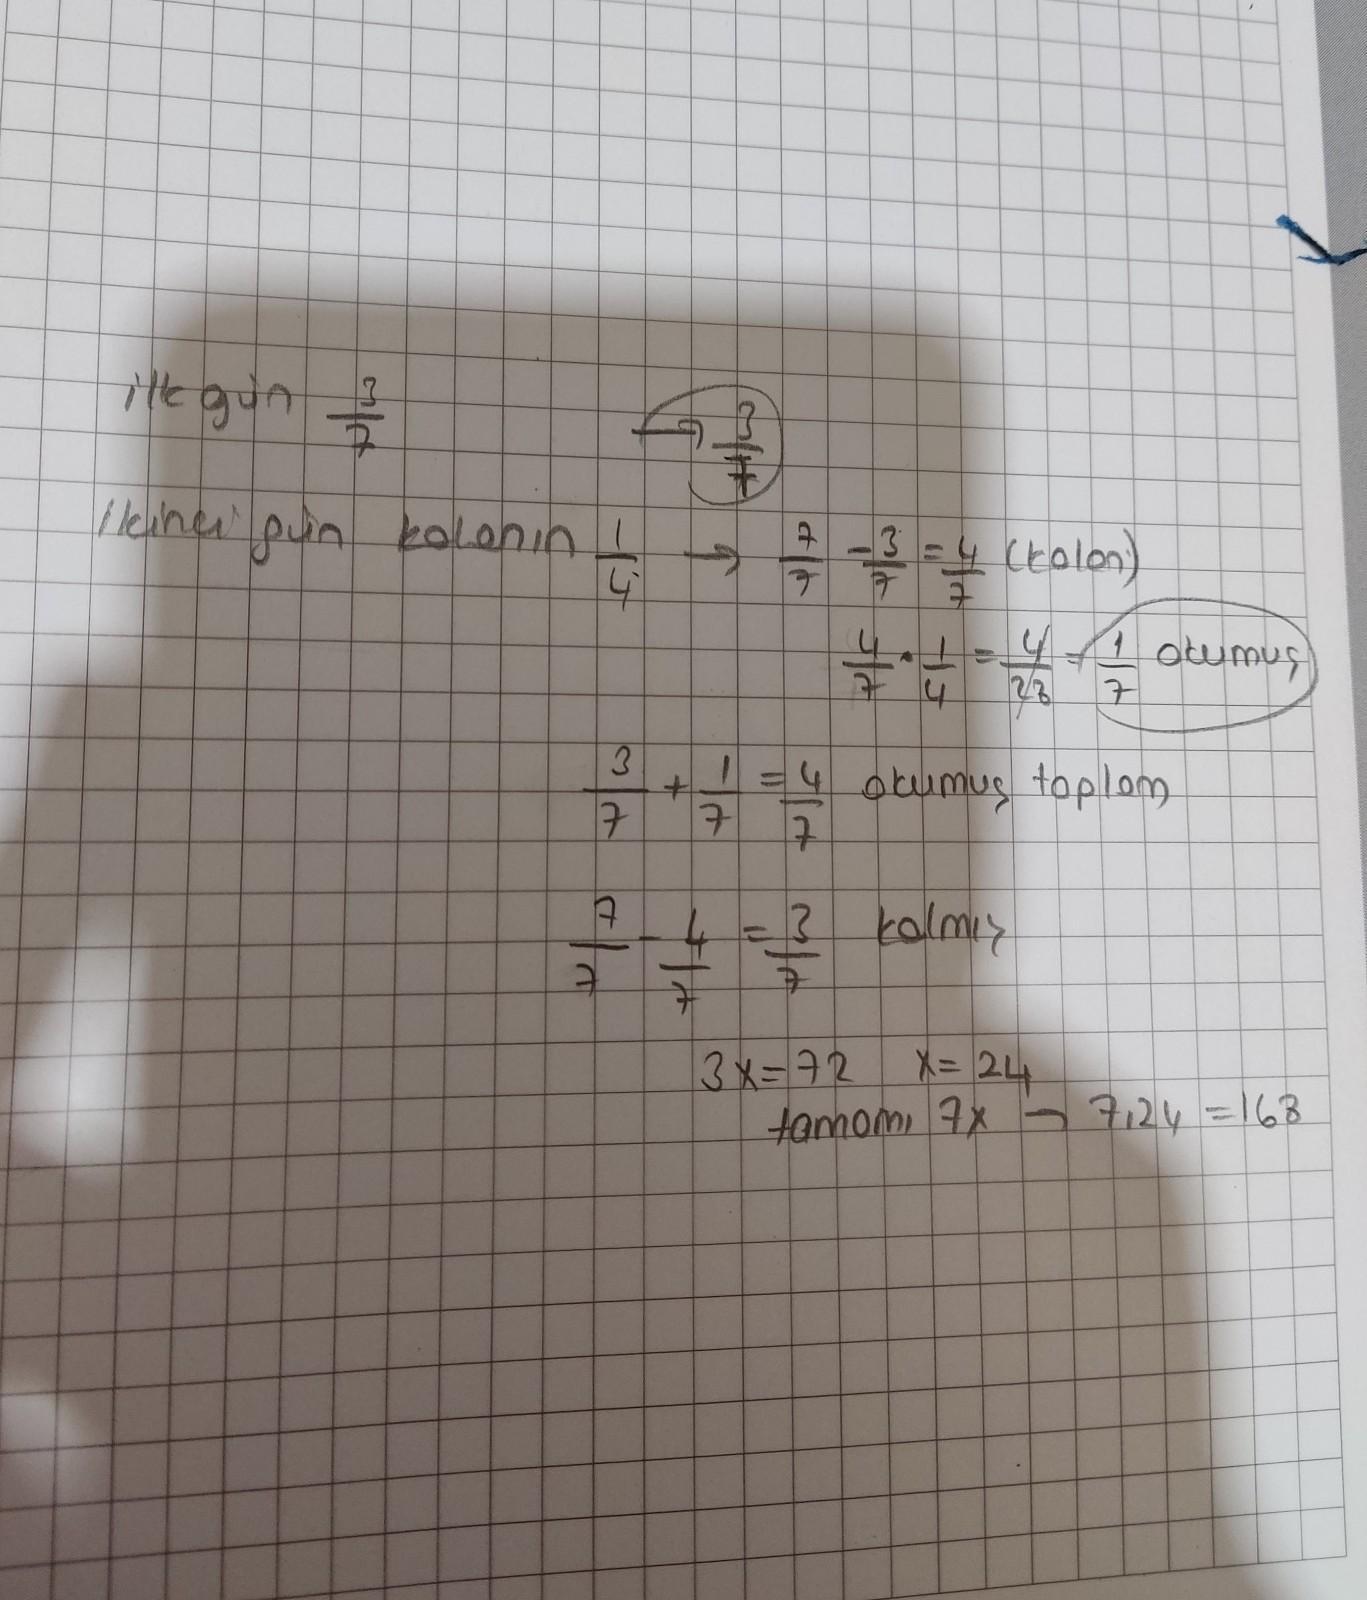 ilk gün 3/7 → 3/7
ikinci gün kalanın 1/4 → 7/7 - 3/7 = 4/7 (kalan)
4/7 · 1/4 = 4/28 = 1/7 okumuş
3/7 + 1/7 = 4/7 okumuş toplam
7/7 - 4/7 = 3/7 kalmış
3x=72 x=24
tamamı 7x → 7.24 =168